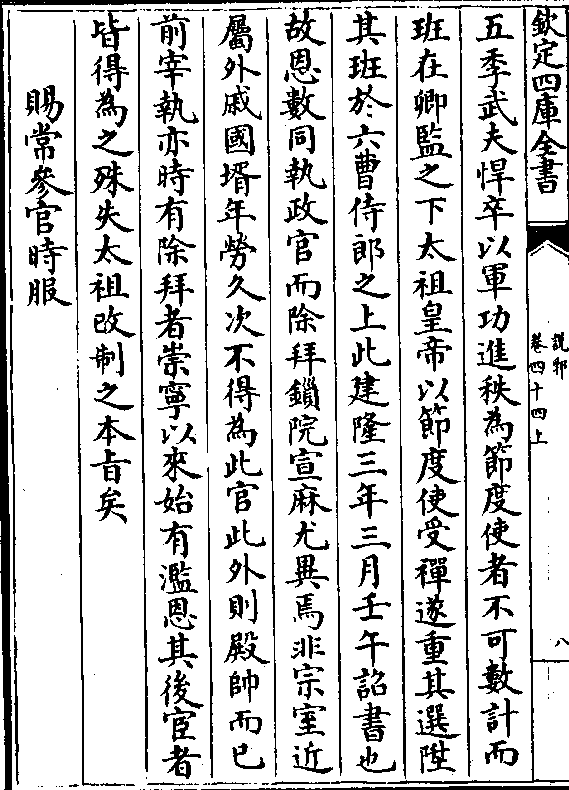 欽定四庫全書
說郛
卷四十四上
八
五季武夫悍卒以軍功進秩為節度使者不可數計而
班在卿監之下太祖皇帝以節度使受禪遂重其選陞
其班於六曹侍郎之上此建隆三年三月壬午詔書也
故恩數同執政官而除拜鎖院宣麻尤異焉非宗室近
屬外戚國壻年勞久次不得為此官此外則殿帥而已
前宰執亦時有除拜者崇寧以來始有濫恩其後宦者
皆得為之殊失太祖改制之本旨矣
賜常參官時服